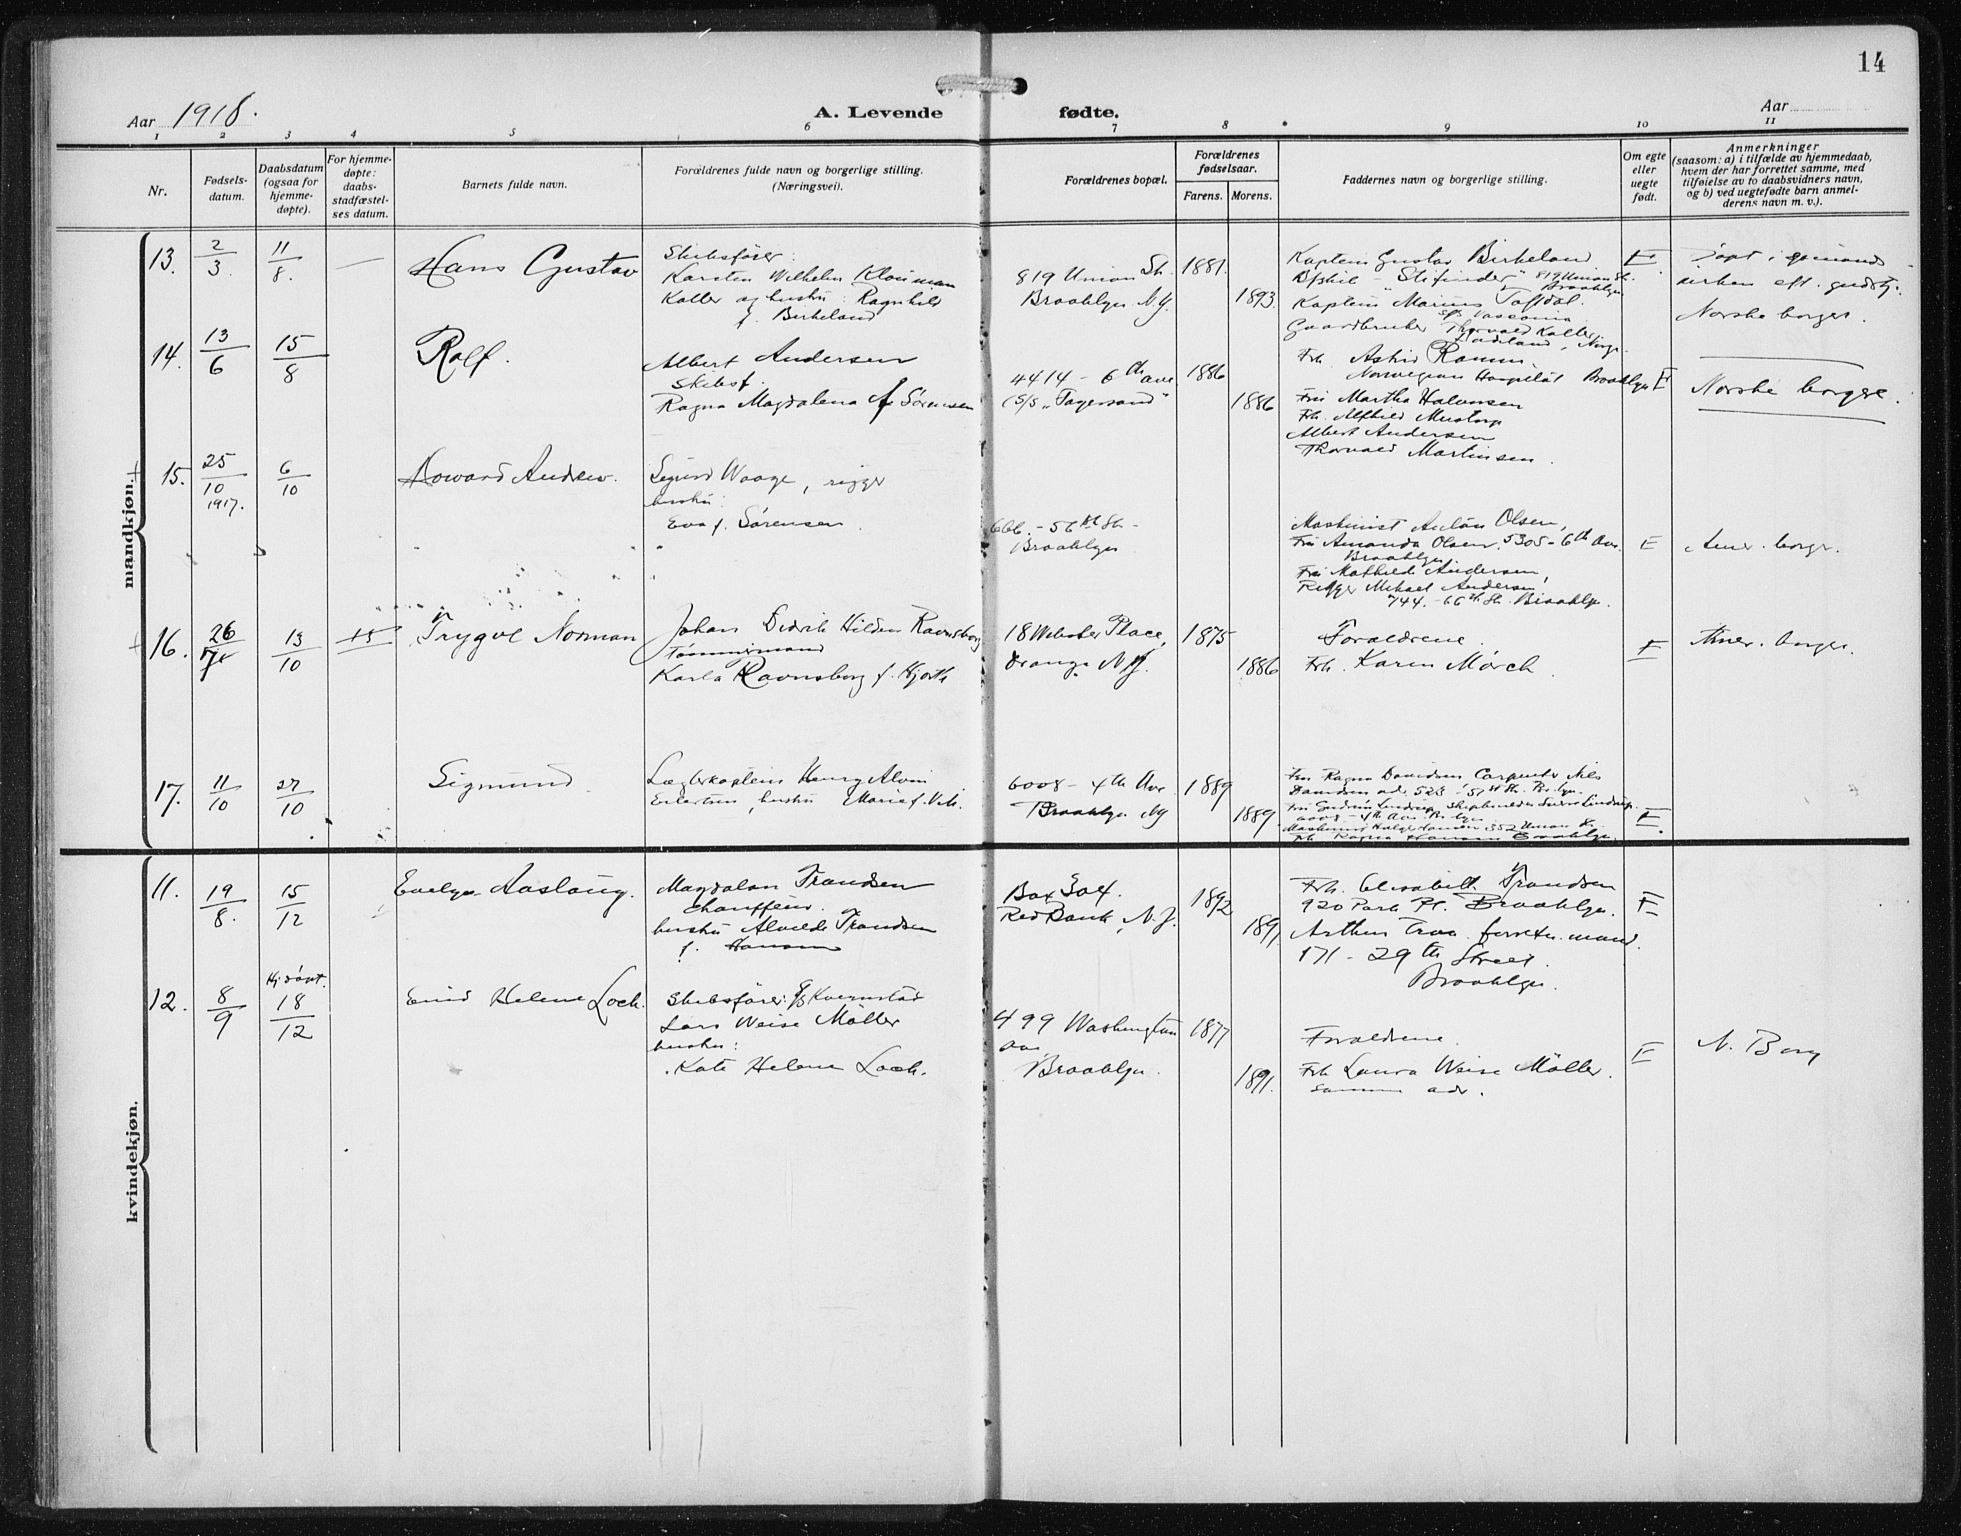 14
Aar 1918.
A. Levende fødte.
Aar
1 2 3 4 5 6 7 8 9 10 11
Nr.
Fødsels-
datum.
Daabsdatum
(ogsaa for
hjemme-
døpte).
For hjemme-
døpte:
daabs-
stadfæstel-
ses datum.
Barnets fulde navn.
Forældrenes fulde navn og borgerlige stilling.
(Næringsvei).
Forældrenes bopæl.
Forældrenes
fødselsaar.
Farens. Morens.
Faddernes navn og borgerlige stilling.
Om egte
eller
uegte
født.
Anmerkninger
(saasom: a) i tilfælde av hjemmedaab,
hvem der har forrettet samme, med
tilføielse av to daabsvidners navn,
og b) ved uegtefødte barn anmel-
derens navn m. v.).
mandkjøn.
13.
2/3
11/8.
Hans Gustav
Skibsfører:
Karsten Wilhelm
Koller og hustru: Ragnhild
f. Birkeland
819 Union St.
Brooklyn N.Y.
1881.
1893
Kaptein Gustav Birkeland
"Stifinder" 819 Union St.
Brooklyn
Kaptein Marius Tofdal.
Gaardbruker Thorvald Koller
E
Døpt i
kirken eft. gudstj.
Norske borger.
14.
13/6
15/8
Rolf.
Albert Andersen
Skibsf.
Ragna Magdalena f. Sørensen
4414 - 6th ave
(S/S "Fagersand"
1886
1886
Frk. Astrid Ramm
Norwegian Hospital Brooklyn
Fru Martha Halvorsen
Frk. Alfhild
Albert Andersen
Thorvald Martinsen.
E
Norske borgere.
15.
25/10
1917.
6/10
Howard Andrew.
Sigurd Waage, rigger
hustru:
Eva f. Sørensen
666. - 56th St. -
Brooklyn
Maskinist Anton Olsen,
Fru Amanda Olsen, 5305 - 6th Ave.
Brooklyn
Fru Mathilde Andersen,
Rigger Mikael Andersen
744. - 66th St. Brooklyn.
E
Amer. borger.
16.
26/7
13/10
15
Trygve Norman
Johan Didrik Hilden Ravnsborg
Tømmermand
Karla Ravnsborg f. Hjorth
18 Webster Place,
Orange N.J.
1875
1886
Forældrene.
Frk. Karen Mørch.
E
Amer. borger.
17.
11/10
27/10
Sigmund
Lægterkaptein Henry Alvin
Eilertsen, hustru Marie f.
6008 - 4th Ave
Brooklyn NY
1889
1889.
Fru Ragna Davidsen Carpenter Nils
Davidsen adr 523 - 51st St. Br.lyn.
Fru Gudrun Lindrup,
6008 - 4th Ave. Br.lyn
Maskinist Helge Hansen 352 Union St.
Frk. Ragna Hansen Brooklyn.
E.
kvindekjøn.
11.
19/8.
15/12
Evelyn Aaslaug.
Magdalon Trondsen
chauffeur.
hustru Alvilde Trondsen
f. Hansen
Box 304.
Red Bank, N.J.
1892
1891.
Frk. Elisabeth Trondsen
920 Park Pl. Brooklyn.
Arthur forretn. mand.
171 - 29th Street.
Brooklyn.
E
12.
8/9
Hj.døpt.
18/12
Enid Helene Loch.
Skibsfører: S/S Kvernstad
Lars Weise Møller
hustru:
Kate Helene Loch.
499 Washington
ave
Brooklyn.
1877
1891.
Forældrene.
Frk Laura Weise Møller.
samme adr.
E
N. Borg